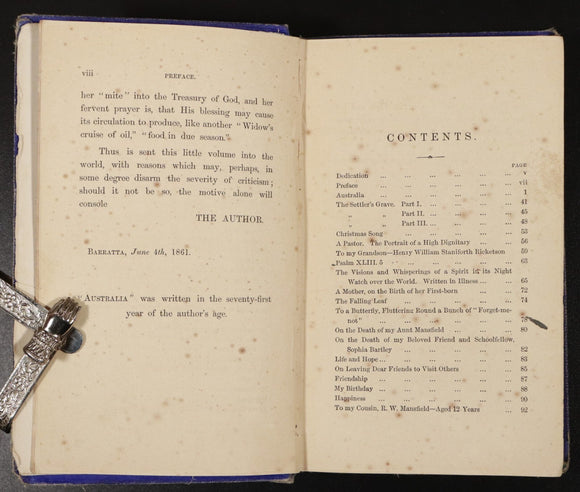 viii PREFACE.
her "mite" into the Treasury of God, and her
fervent prayer is, that His blessing may cause
its circulation to produce, like another "Widow's
cruise of oil," "food in due season."
Thus is sent this little volume into the
world, with reasons which may, perhaps, in
some degree disarm the severity of criticism;
should it not be so, the motive alone will
console
THE AUTHOR.
BARRATTA, June 4th, 1861.
AUSTRALIA" was written in the seventy-first
year of the author's age.
CONTENTS.
PAGE
Dedication ... ... ... ... ... ... v
Preface ... ... ... ... ... ... vii
Australia ... ... ... ... ... ... 1
The Settler's Grave. Part I. ... ... ... ... 41
" " Part II. ... ... ... ... 45
" " Part III. ... ... ... ... 48
Christmas Song ... ... ... ... ... 53
A Pastor. The Portrait of a High Dignitary ... ... 56
To my Grandson—Henry William Staniforth Ricketson 59
Psalm XLIII. 5 ... ... ... ... ... 63
The Visions and Whisperings of a Spirit in its Night
Watch over the World. Written in Illness ... ... 65
A Mother, on the Birth of her First-born ... ... 72
The Falling Leaf ... ... ... ... ... 74
To a Butterfly, Fluttering Round a Bunch of "Forget-me-
not" ... ... ... ... ... ... 78
On the Death of my Aunt Mansfield ... ... ... 80
On the Death of my Beloved Friend and Schoolfellow,
Sophia Bartley ... ... ... ... ... 82
Life and Hope ... ... ... ... ... 83
On Leaving Dear Friends to Visit Others ... ... 85
Friendship ... ... ... ... ... ... 87
My Birthday ... ... ... ... ... 88
Happiness ... ... ... ... ... ... 90
To my Cousin, R. W. Mansfield—Aged 12 Years ... 92